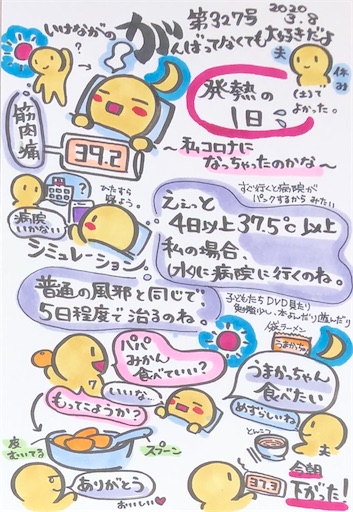 いけながの
がんばってなくても大好きだよ
第327号
2020
3.8
夫
休み
(土)で
よかった。
発熱の
1日
筋肉痛
39.2
〜私コロナに
なっちゃったのかな〜
ひたすら
寝よう。
病院
いかない
シミュレーション。
すぐ行くと病院が
パンクするから みたい
えぇっと
4日以上37.5℃以上
私の場合、
(水)に病院に行くのね。
普通の風邪と同じで、
5日程度で治るのね。
子どもたちDVD見たり
勉強少し、本よんだり遊んだり
パパ
みかん
食べていい?
袋ラーメン
うまかっちゃん
うまかっちゃん
食べたい
いいな…
めずらしいね
夫
もってこようか?
皮
むいてる
スプーン
とんこつ
ありがとう
おいしい
37.3
今朝
下がった!